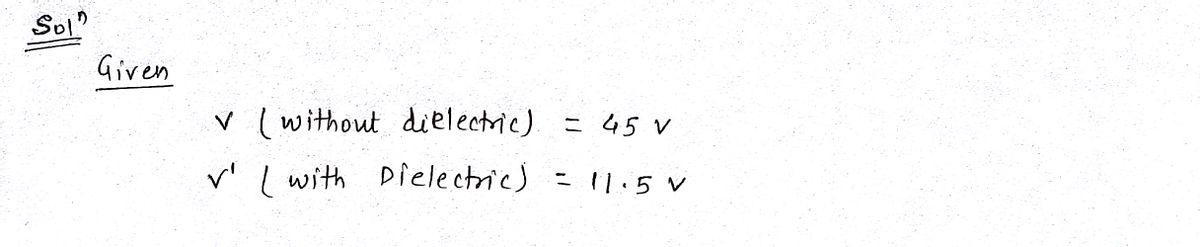 Solⁿ
Given
V (without dielectric) = 45 V
V' (with Dielectric) = 11.5 V